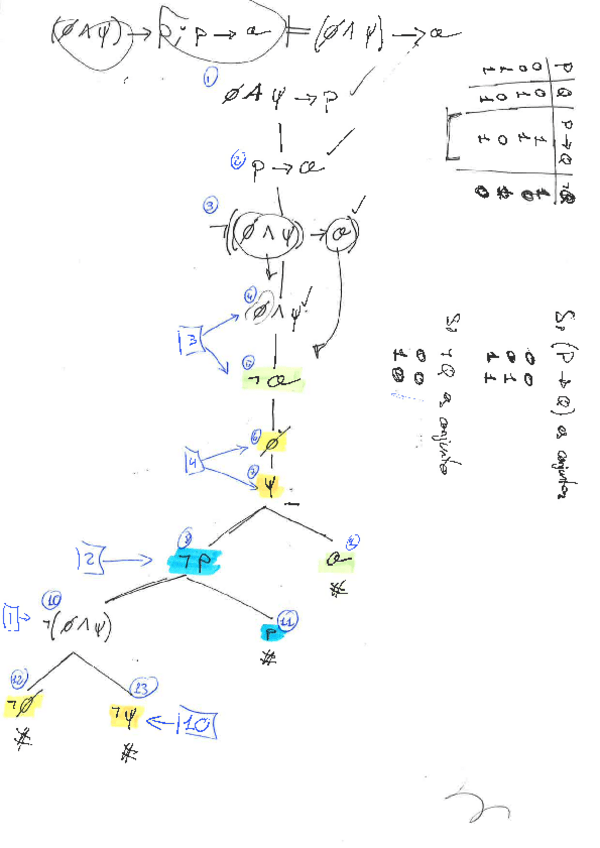 (ø ∧ ψ) → p; p → a ⊨ (ø ∧ ψ) → a
① ø ∧ ψ → p ✓
② p → a ✓
③ ¬((ø ∧ ψ) → a) ✓
④ ø ∧ ψ ✓
3
⑤ ¬ a
⑥ ø
4
⑦ ψ
2 ⑧ ¬ p ⑨ a
#
1 ⑩ ¬(ø ∧ ψ) ⑪ p
#
⑫ ¬ø ⑬ ¬ψ 10
# #
P Q P → Q ¬Q
0 0 1 1
0 1 1 0
1 0 0
1 1 1 0
Si (P → Q) es conjunto
0 0
0 1
1 1
Si ¬Q es conjunto
0 0
1 0